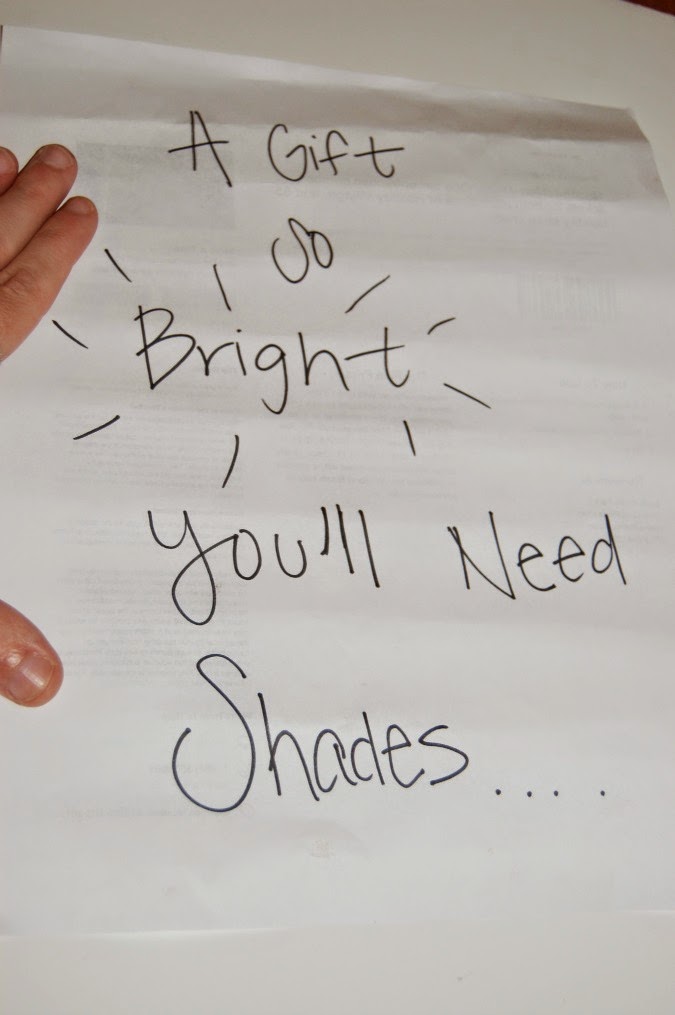 A Gift
So
Bright
You'll Need
Shades....